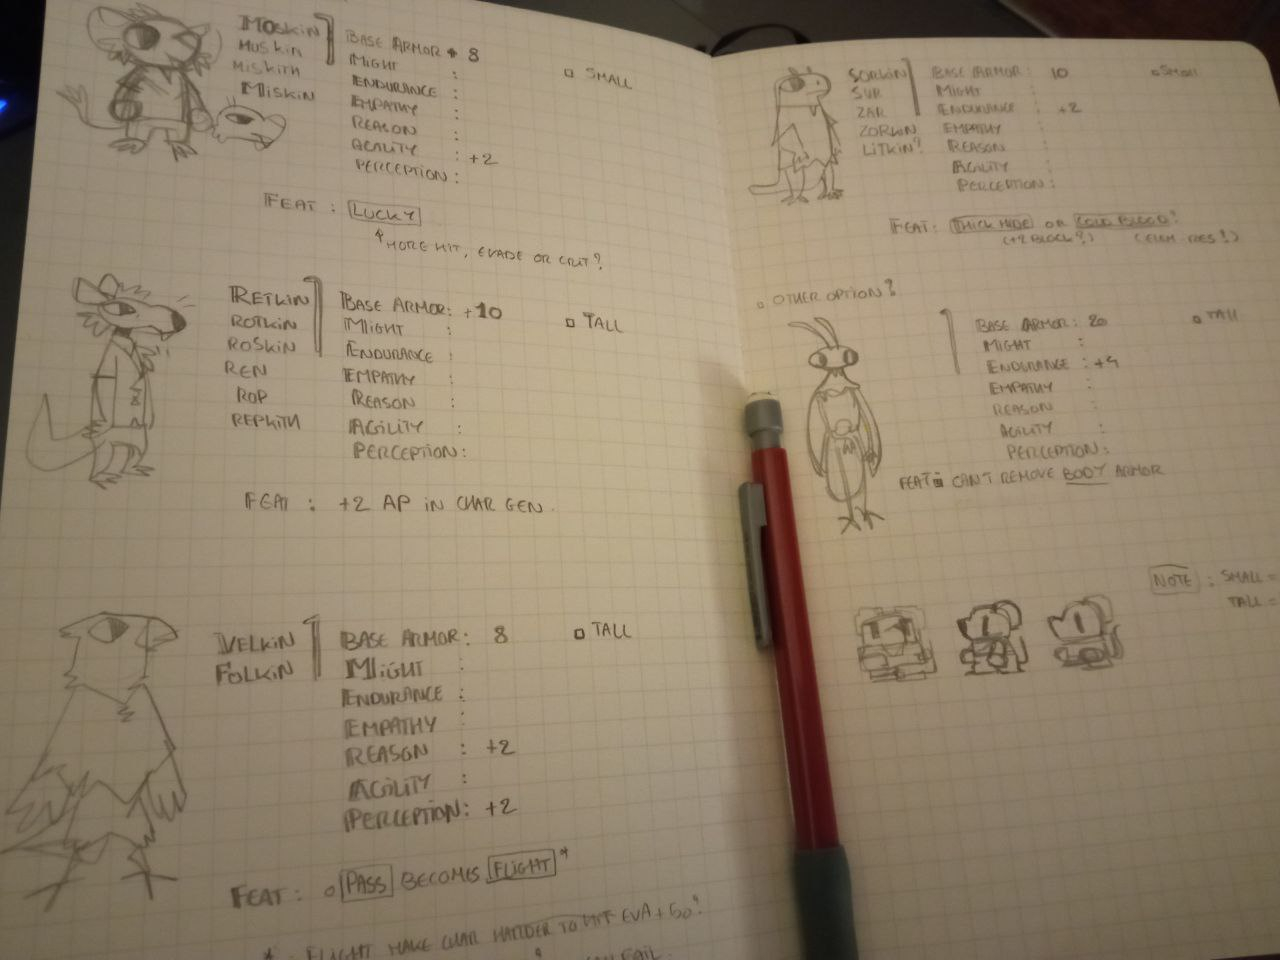 MOSKIN
MUSKIN
MISKITH
MISKIN
BASE ARMOR 8
MIGHT :
ENDURANCE :
EMPATHY :
REASON :
AGILITY : +2
PERCEPTION :
SMALL
FEAT : LUCKY
MORE HIT, EVADE OR CRIT?
RETKIN
ROTKIN
ROSKIN
REN
ROP
REPKITH
BASE ARMOR : +10
MIGHT :
ENDURANCE :
EMPATHY :
REASON :
AGILITY :
PERCEPTION :
TALL
FEAT : +2 AP IN CHAR GEN.
VELKIN
FOLKIN
BASE ARMOR : 8
MIGHT :
ENDURANCE :
EMPATHY :
REASON : +2
AGILITY :
PERCEPTION : +2
TALL
FEAT : PASS BECOMES FLIGHT *
* FLIGHT MAKE CHAR HARDER TO HIT EVA + 50?
FAIL
SORKIN
SUR
ZAR
ZORKIN
LITKIN?
BASE ARMOR : 10
MIGHT :
ENDURANCE : +2
EMPATHY :
REASON :
AGILITY :
PERCEPTION :
SMALL
FEAT : THICK HIDE OR COLD BLOOD?
(+2 BLOCK?) (ELEM RES?)
OTHER OPTION?
BASE ARMOR : 20
MIGHT :
ENDURANCE : +4
EMPATHY :
REASON :
AGILITY :
PERCEPTION :
TALL
FEAT : CAN'T REMOVE BODY ARMOR
NOTE : SMALL =
TALL =